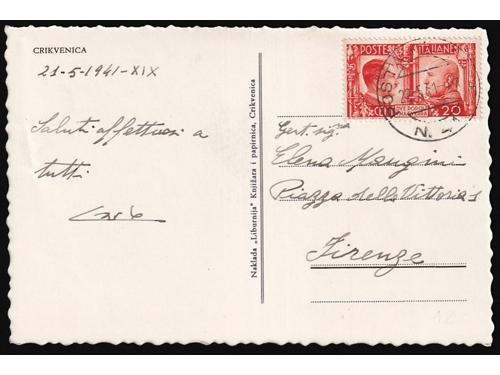 CRIKVENICA
21-5-1941-XIX
Saluti affettuosi a
tutti
Carlo
Naklada „Liburnija" Knjižara i papirnica, Crikvenica
POSTE ITALIANE
20
Gert. sig.ra
Elena Mangini
Piazza della Vittoria 1
Firenze